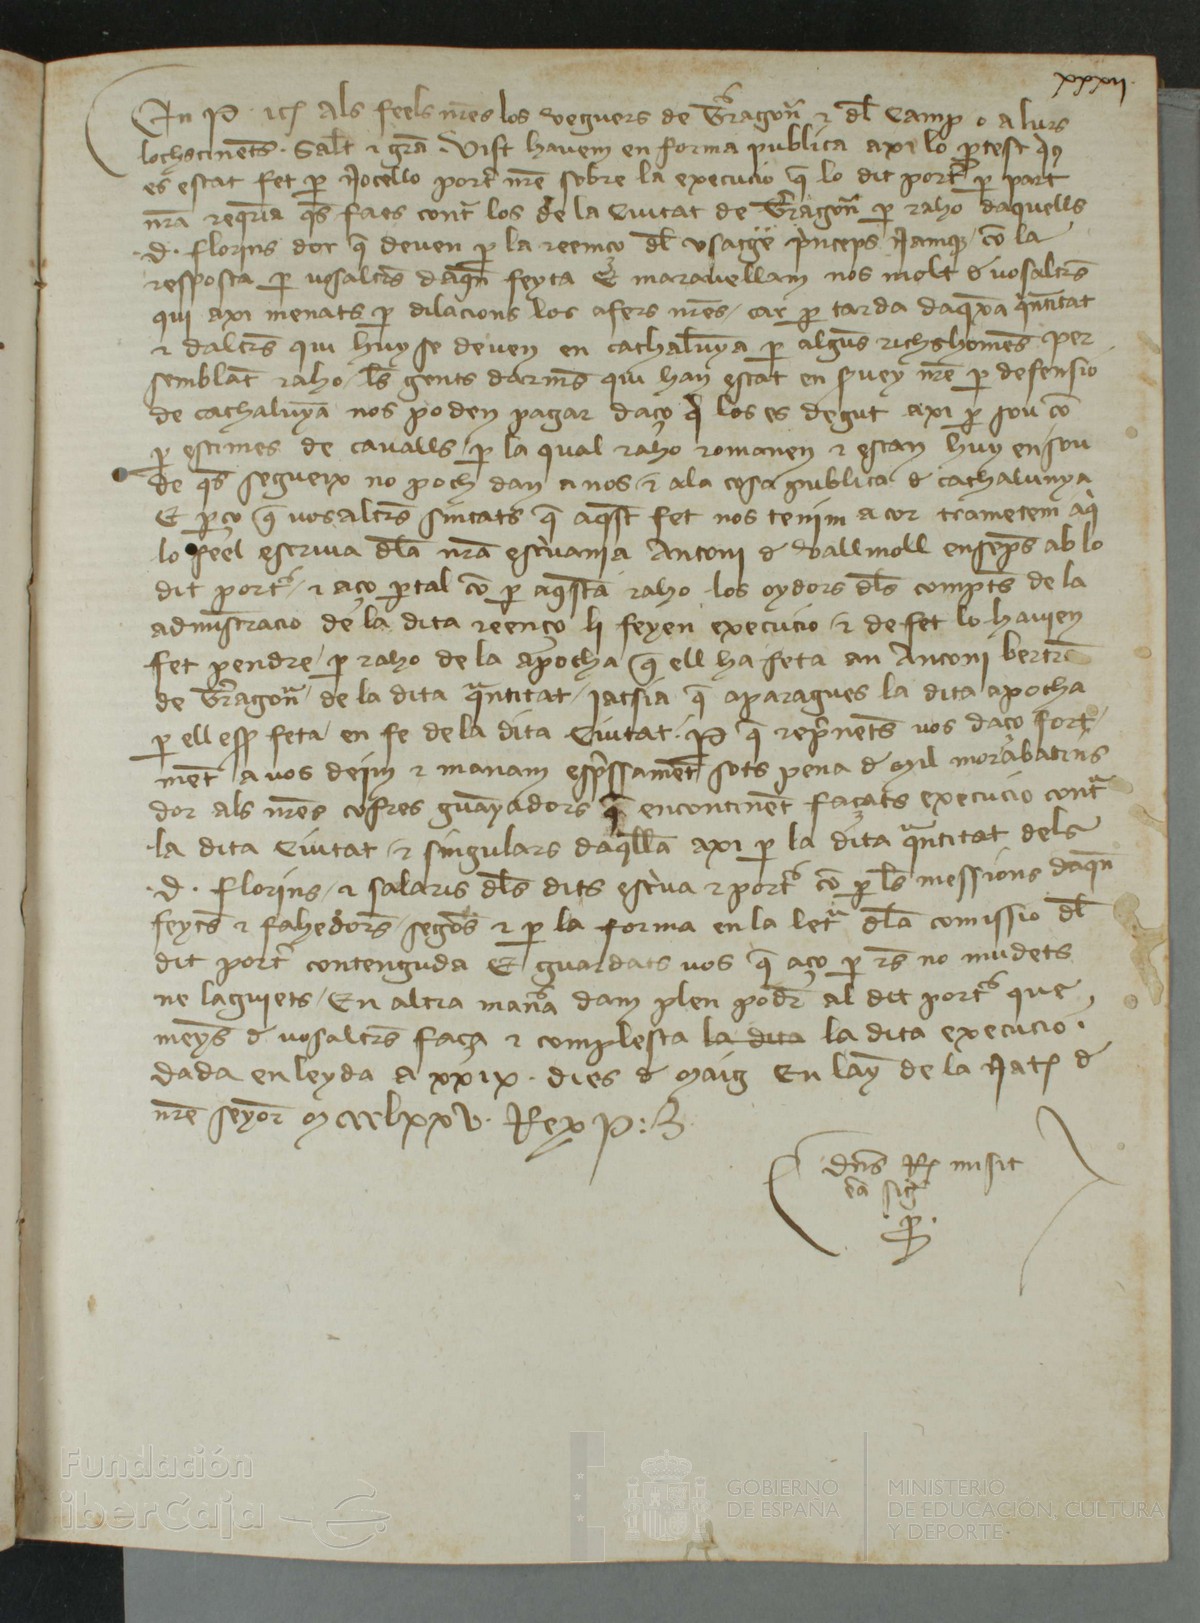 xxxii.
En P. etc̃ Als feels nr̃es los veguers de Tr̃agona ⁊ dl̃ Camp o a lurs
lochstinents. Salt̃ ⁊ gr̃a. Vist havem en forma publica axi lo ꝑtest q̃
es estat fet ꝑ Nocello port̃ nr̃e sobre la execucio q̃ lo dit port̃ ꝑ part
nr̃a reqria q̃s faes cont̃ los de la Ciutat de Tr̃agona ꝑ raho daquells
.D. florins dor q̃ deven ꝑ la reemço dl̃ usatge prínceps Namq̃ cõ la
resposta ꝑ vosaltrs̃ daqñ feyta E maravellam nos molt d̃ vosaltrs̃
qui axi menats ꝑ dilacions los afers nr̃es / car ꝑ tarda daq̃xa quantitat
⁊ daltrs̃ qui huy se deven en cathaluya ꝑ alguñs richshomens per
semblat̃ raho / ls̃ gents darmes qui han estat en s̃vey nr̃e ꝑ defensio
de cathaluya nos poden pagar daço q̃ los es degut axi ꝑ sou cõ
ꝑ estimes de cavalls / ꝑ la qual raho romanen ⁊ estan huy en sou
de q̃s segueix no poch dan a nos ⁊ a la cosa publica d̃ cathalunya
E ꝑço q̃ vosaltrs̃ sintats q̃ aqst̃ fet nos tenim a cor trametem aq̃
lo feel escriva dl̃a nr̃a escrivania Antoni d̃ vallmoll ensemps ab lo
dit port̃ / ⁊ aço ꝑtal cõ ꝑ aqsta raho los oydors dls̃ compts de la
admistracio de la dita reenço li feyen execucio / ⁊ de fet lo havien
fet pendre / ꝑ raho de la apocha q̃ ell ha feta an Antoni bertrã
de Tr̃agona / de la dita quantitat / jatsia q̃ aparagues la dita apocha
ꝑ ell esser feta / en fe de la dita Ciutat. P̱ q̃ repñents vos daço fort
ment̃ a vos deim ⁊ manam exp̃ssament̃ sots pena d̃ Mil morabatins
dor als nr̃es cofres guanyadors q̃ encontinent̃ façats execucio cont̃
la dita Ciutat / ⁊ singulars daqlla axi ꝑ la dita quantitat dels
.D. florins / ⁊ salaris dls̃ dits escriva ⁊ port̃ cõ ꝑ ls̃ messions daqñ
feyts ⁊ fahedors / segõs ⁊ ꝑ la forma en la letr̃ dl̃a comissio dl̃
dit port̃ contenguda E guardats vos q̃ aço ꝑ rs̃ no mudets
ne laguiets / En altra manera dam plen poder al dit port̃ que
meyns d̃ vosaltrs̃ faça ⁊ complesca la dita la dita execucio.
Dada en leyda a xxix. dies d̃ Maig En lany de la Nat̃ d̃
nr̃e Seyor Mccclxxv. Rex P:
dñs Rex misit
cũ sig̃
.P.
Fundación
iberCaja
GOBIERNO
DE ESPAÑA
MINISTERIO
DE EDUCACIÓN, CULTURA
Y DEPORTE